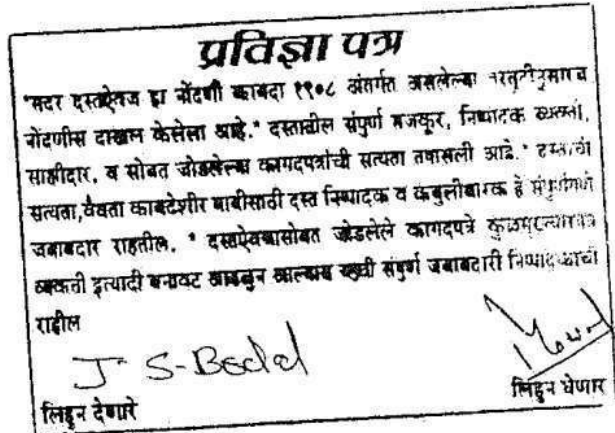 प्रतिज्ञा पत्र
"सदर दस्तऐवज हा नोंदणी कायदा १९०८ अंतर्गत असलेल्या तरतुदीनुसारच
नोंदणीस दाखल केलेला आहे." दस्तातील संपुर्ण मजकूर, निष्पादक व्यक्ती,
साक्षीदार, व सोबत जोडलेल्या कागदपत्रांची सत्यता तपासली आहे. " दस्ताची
सत्यता,वैधता कायदेशीर बाबीसाठी दस्त निष्पादक व कबुलीधारक हे संपुर्णपणे
जबाबदार राहतील. " दस्तऐवजासोबत जोडलेले कागदपत्रे कुळमुखत्यारपत्र
व्यक्ती इत्यादी बनावट आढळुन आल्यास याची संपुर्ण जबाबदारी निष्पादकाची
राहील
J S-Bodd
लिहून देणारे लिहून घेणार